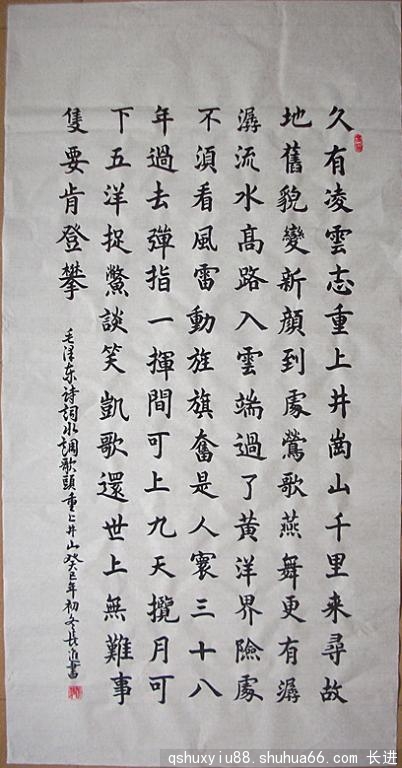 久有凌雲志重上井崗山千里来尋故
地舊貌變新顔到處鶯歌燕舞更有潺
潺流水高路入雲端過了黄洋界險處
不須看風雷動旌旗奮是人寰三十八
年過去彈指一揮間可上九天攬月可
下五洋捉鱉談笑凱歌還世上無難事
隻要肯登攀
毛泽东诗詞水調歌頭重上井山癸巳年初冬长進書
qshuxyiu88.shuhua66.com 长进